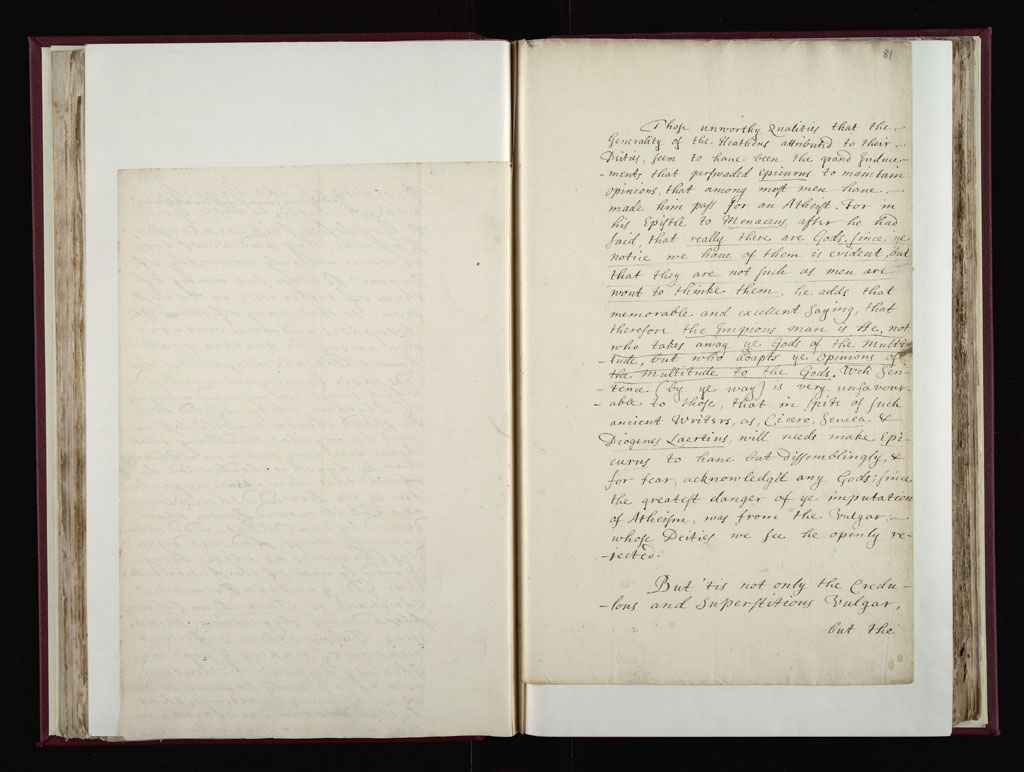 81
Those unworthy Qualities that the
Generality of the Heathens attributed to their
Deities, seem to haue been the grand Enduce-
-ments that perswaded Epicurus to maintain
opinions, that among most men haue
made him pass for an Atheist. For in
his Epistle to Menaceus, after he had
said, that really there are Gods, since ye
notice we haue of them is evident, but
that they are not such as men are
wont to thinke them, he adds that
memorable and excellent saying, that
therefore the Impious man is He, not
who takes away ye Gods of the Multi-
-tude, but who adapts ye opinions of
the Multitude to the Gods. Wch Sen-
-tence (by ye way) is very unfavour-
-able to those, that in spite of such
ancient Writers, as, Cicero, Seneca &
Diogenes Laertius, will needs make Epi-
curus to haue but dissemblingly, &
for fear, acknowledg'd any Gods; since
the greatest danger of ye imputation
of Atheism, was from the Vulgar,
whose Deities we see he openly re-
-jected.
But 'tis not only the Credu-
-lous and Superstitious Vulgar,
but the